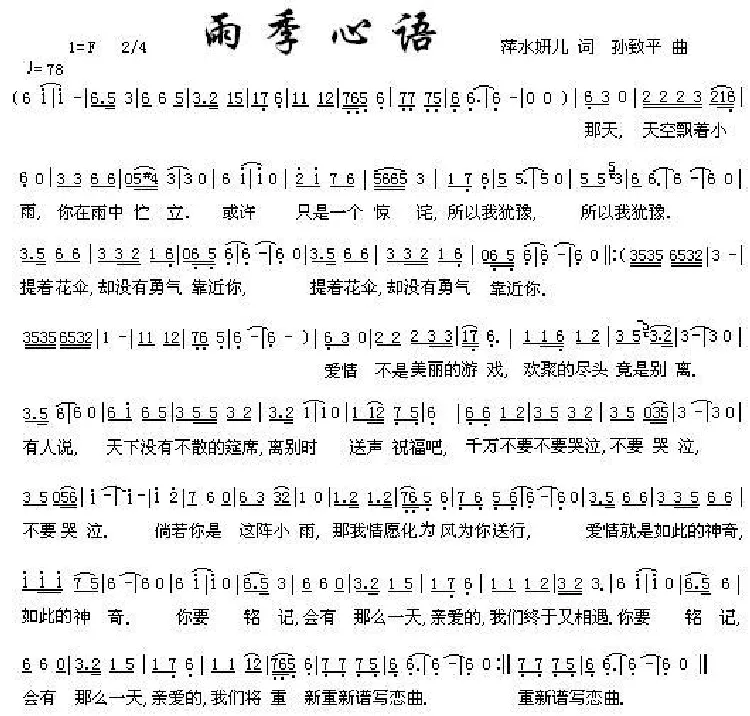 雨季心语
1=F 2/4 萍水妍儿 词 孙致平 曲
♩=78
(6 i i -|6.5 3|6 6 5|3.2 15|17 6|11 12|765 6|77 75|6 6.|6 -|0 0)|6 3 0|2 2 2 3 216|
那天, 天空飘着小
6 0|3 3 6 6|05#4 3|3 3 0|6 i|i 0|2 i 7 6|5685 3|1 7 6|5 5.|5 0|5 5 3|6 6.|6 -|6 0|
雨, 你在雨中 伫 立. 或许 只是一个 惊 诧, 所以我犹豫, 所以我犹豫.
3.5 6 6|3 3 2 1 6|06 5 6|6 -|6 0|3.5 6 6|3 3 2 1 6|06 5|6|6 -|6 0‖:(3535 6532|3 -|
提着花伞, 却没有勇气 靠近你, 提着花伞, 却没有勇气 靠近你.
3535 6532|1 -|11 12|76 5|6 -|6 -)|6 3 0|2 2 2 3 3|17 6.|1 1 6 1 2|3 5 3.2|3 -|3 0|
爱情 不是美丽的游 戏, 欢聚的尽头 竟是别 离.
3.5 6|6 0|6 i 6 5|3 5 5 3 2|3.2 1|i 0|1 12 7 5|6 |6 6 1 2|3 5 5 3 2|3 5 035|3 -|3 0|
有人说, 天下没有不散的筵席, 离别时 送声 祝福吧, 千万不要不要哭泣, 不要 哭 泣,
3 5 056|i -|i -|i 2|7 6 0|6 3 32|1 0|1.2 1.2|76 5 6|7 6 5 6|6 -|6 0|3.5 6 6|3 3 5 6 6|
不要 哭 泣. 倘若你是 这阵小 雨, 那我情愿化为 风为你送行, 爱情就是如此的神奇,
i i i 7 5|6 -|6 0|6 i|i 0|6.5 3|6 6 0|3.2 1 5|1 7 6|1 1 1 2|3 2 3.|6 i|i 0|6.5 6|
如此的神 奇. 你要 铭 记, 会有 那么一天, 亲爱的, 我们终于又相遇. 你要 铭 记,
6 6 0|3.2 1 5|1 7 6|1 1 12|765 6|7 7 7 5|6 6.|6 -|6 0:‖7 7 7 5|6 6.|6 -|6 0‖
会有 那么一天, 亲爱的, 我们将 重 新重新谱写恋曲. 重新谱写恋曲.